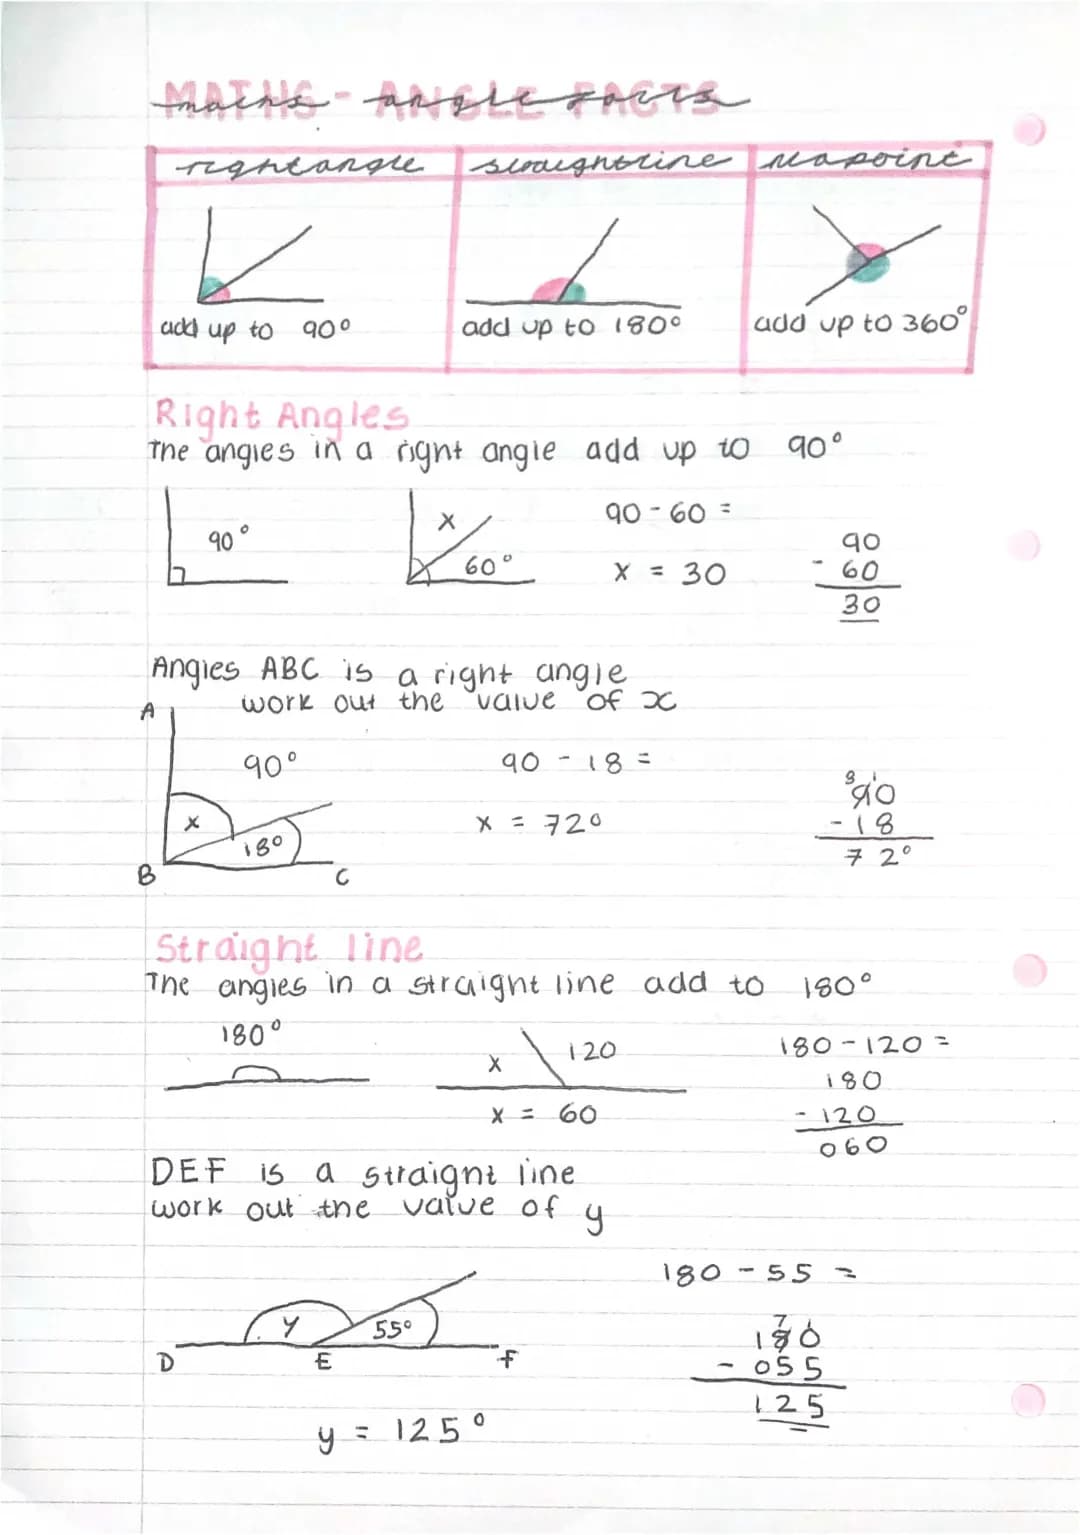 MATHS - ANGLE FACTS
maths - angle facts
right angle
straight line
add up to 90°
add up to 180°
add up to 360°
Right Angles
The angles in a right angle add up to 90°
90°
x
60°
90 - 60 =
x = 30
90
- 60
30
Angles ABC is a right angle
work out the value of x
A
90°
x
18°
B
C
90 - 18 =
x = 72°
8 1
90
- 18
72°
Straight line
The angles in a straight line add to 180°
180°
x
120
x = 60
180 - 120 =
180
- 120
060
DEF is a straight line
work out the value of y
y
55°
D
E
F
y = 125°
180 - 55 =
7
180
- 055
125